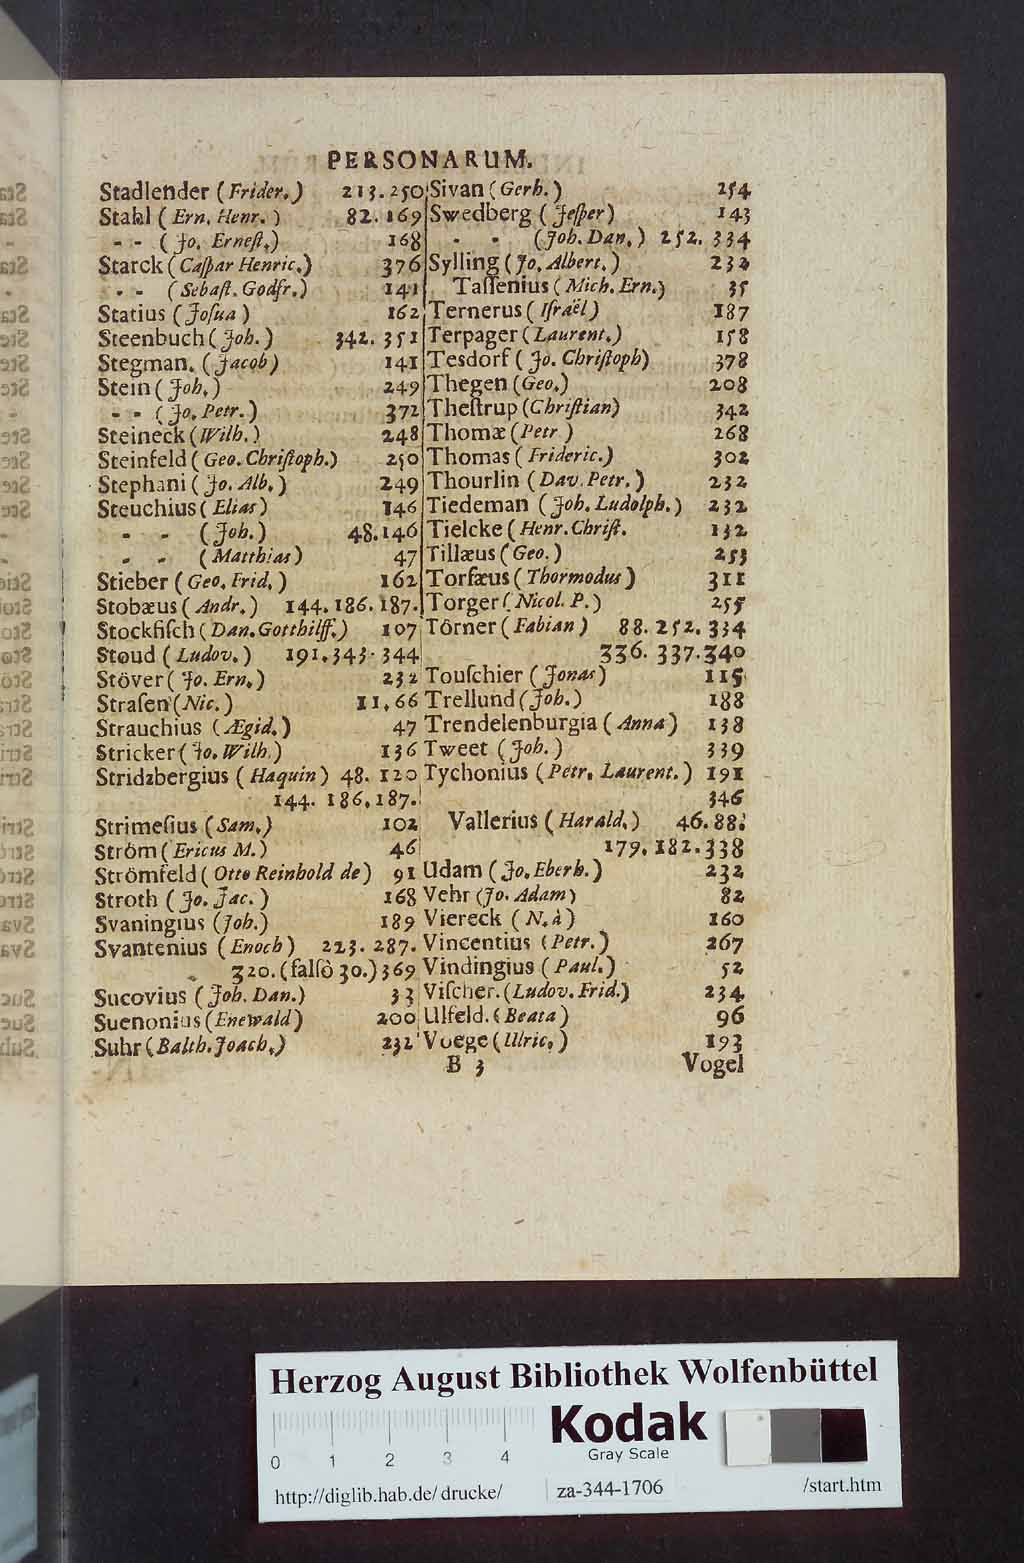 PERSONARUM.
Stadlender (Frider.) 213. 250
Stahl (Ern. Henr.) 82. 169
- - (Jo. Erneſt.) 168
Starck (Caſpar Henric.) 376
- - (Sebaſt. Godfr.) 141
Statius (Joſua) 162
Steenbuch (Joh.) 342. 351
Stegman. (Jacob) 141
Stein (Joh.) 249
- - (Jo. Petr.) 372
Steineck (Wilh.) 248
Steinfeld (Geo. Chriſtoph.) 250
Stephani (Jo. Alb.) 249
Steuchius (Elias) 146
- - (Joh.) 48. 146
- - (Matthias) 47
Stieber (Geo. Frid.) 162
Stobæus (Andr.) 144. 186. 187.
Stockfiſch (Dan. Gotthilff.) 107
Stoud (Ludov.) 191. 343. 344
Stöver (Jo. Ern.) 232
Straſen (Nic.) 11. 66
Strauchius (Ægid.) 47
Stricker (Jo. Wilh.) 136
Stridzbergius (Haquin) 48. 120
144. 186. 187.
Strimeſius (Sam.) 102
Ström (Ericus M.) 46
Strömfeld (Otto Reinhold de) 91
Stroth (Jo. Jac.) 168
Svaningius (Joh.) 189
Svantenius (Enoch) 223. 287.
320. (falſò 30.) 369
Sucovius (Joh. Dan.) 33
Suenonius (Enewald) 200
Suhr (Balth. Joach.) 232
Sivan (Gerh.) 254
Swedberg (Jeſper) 143
- - (Joh. Dan.) 252. 334
Sylling (Jo. Albert.) 232
Taſſenius (Mich. Ern.) 35
Ternerus (Iſraël) 187
Terpager (Laurent.) 158
Tesdorf (Jo. Chriſtoph) 378
Thegen (Geo.) 208
Theſtrup (Chriſtian) 342
Thomæ (Petr) 268
Thomas (Frideric.) 302
Thourlin (Dav. Petr.) 232
Tiedeman (Joh. Ludolph.) 232
Tielcke (Henr. Chriſt. 132
Tillæus (Geo.) 253
Torfæus (Thormodus) 311
Torger (Nicol. P.) 255
Törner (Fabian) 88. 252. 334
336. 337. 340
Touſchier (Jonas) 115
Trellund (Joh.) 188
Trendelenburgia (Anna) 138
Tweet (Joh.) 339
Tychonius (Petr. Laurent.) 191
346
Vallerius (Harald.) 46. 88.
179. 182. 338
Udam (Jo. Eberh.) 232
Vehr (Jo. Adam) 82
Viereck (N. à) 160
Vincentius (Petr.) 267
Vindingius (Paul.) 52
Viſcher. (Ludov. Frid.) 234
Ulfeld. (Beata) 96
Voege (Ulric.) 193
B 3 Vogel
Herzog August Bibliothek Wolfenbüttel
Kodak
Gray Scale
0 1 2 3 4
http://diglib.hab.de/drucke/ za-344-1706 /start.htm